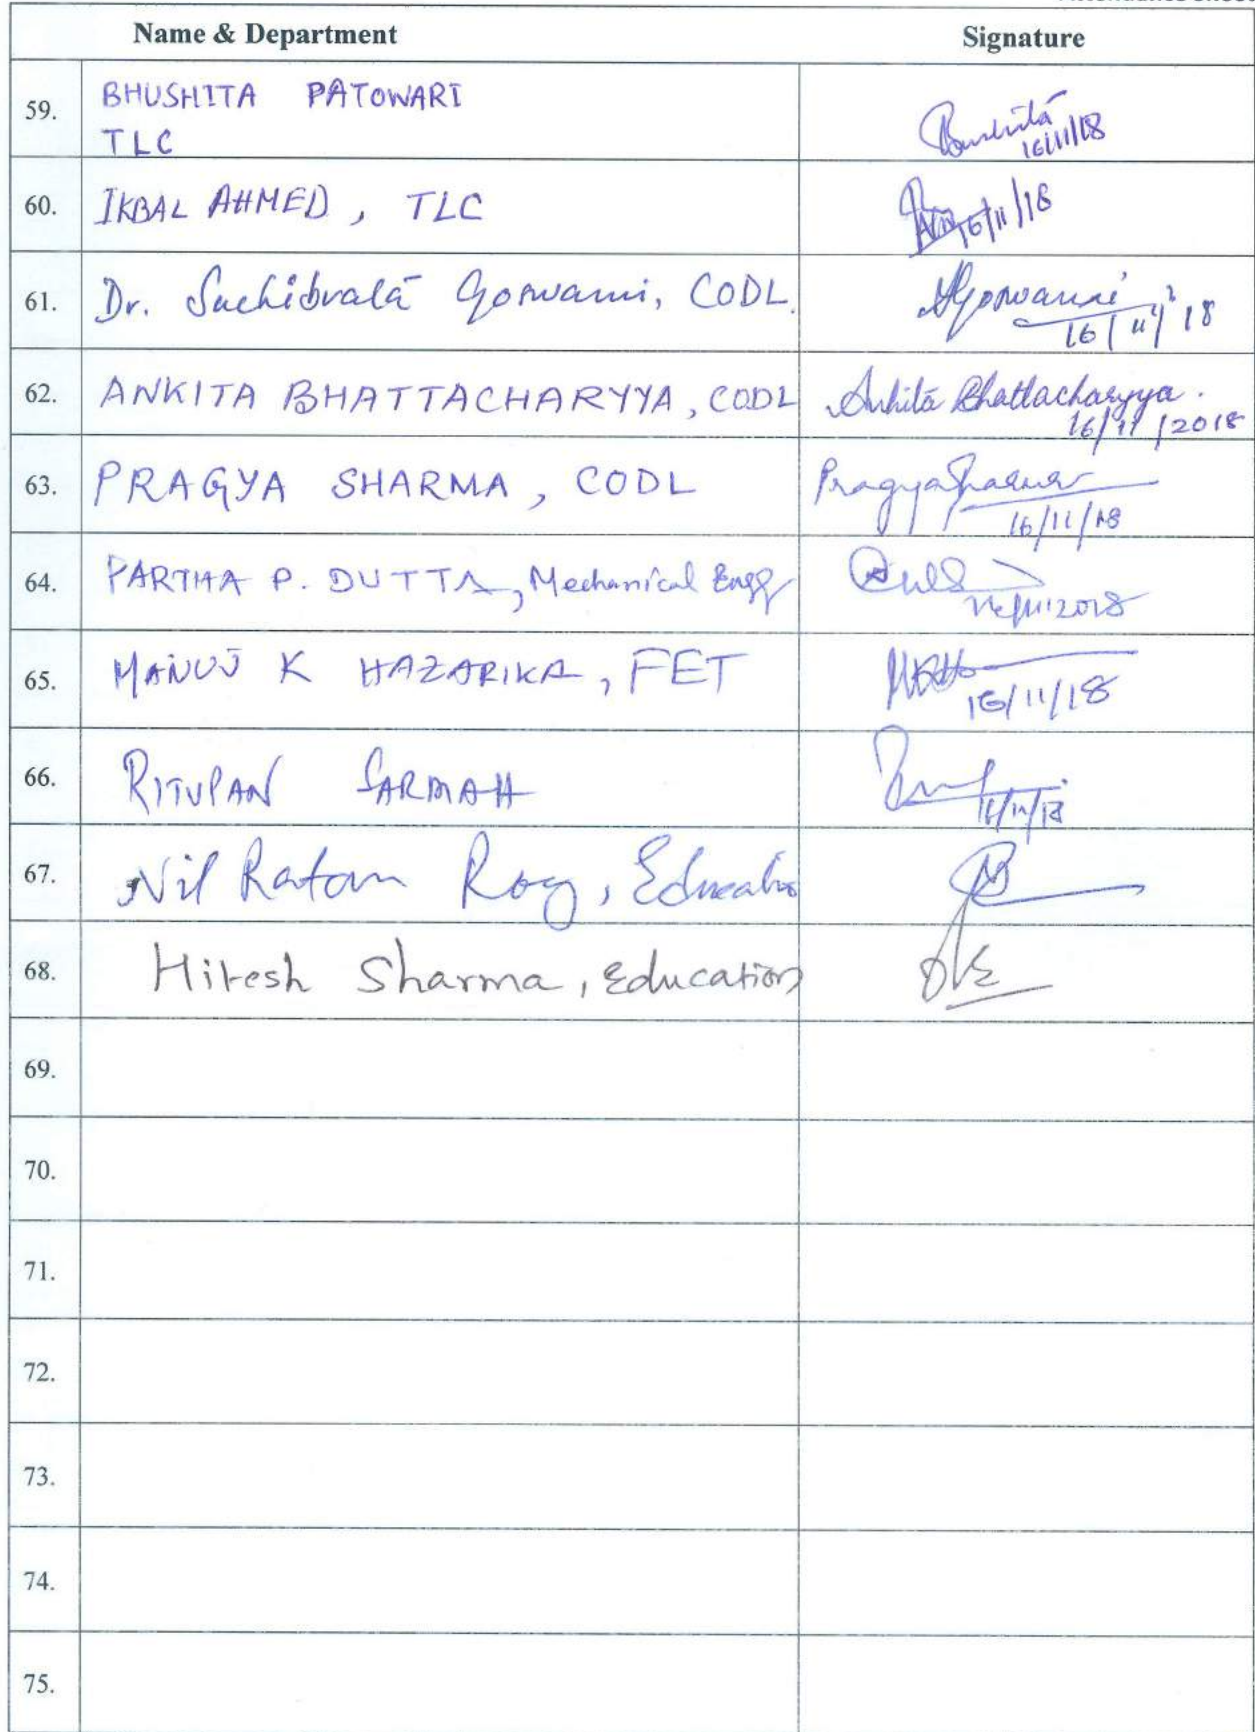 Name & Department Signature
59. BHUSHITA PATOWARI
TLC
Bushita
16/11/18
60. IKBAL AHMED, TLC
16/11/18
61. Dr. Suchibrata Goswami, CODL.
Goswami
16/11/18
62. ANKITA BHATTACHARYYA, CODL Ankita Bhattacharyya.
16/11/2018
63. PRAGYA SHARMA, CODL Pragya Sharma
16/11/18
64. PARTHA P. DUTTA, Mechanical Engg
65. MANUJ K HAZARIKA, FET
16/11/18
66. RITUPAN SARMAH
16/11/18
67. Nil Ratan Roy, Education
68. Hitesh Sharma, Education
69.
70.
71.
72.
73.
74.
75.